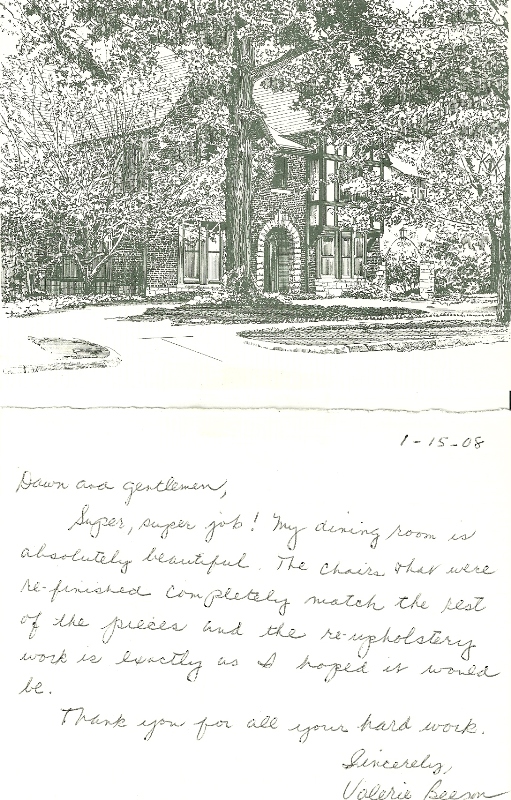 1-15-08
Dawn and gentlemen,
Super, super job! My dining room is
absolutely beautiful. The chairs that were
re-finished completely match the rest
of the pieces and the re-upholstery
work is exactly as I hoped it would
be.
Thank you for all your hard work.
Sincerely,
Valerie Beeson